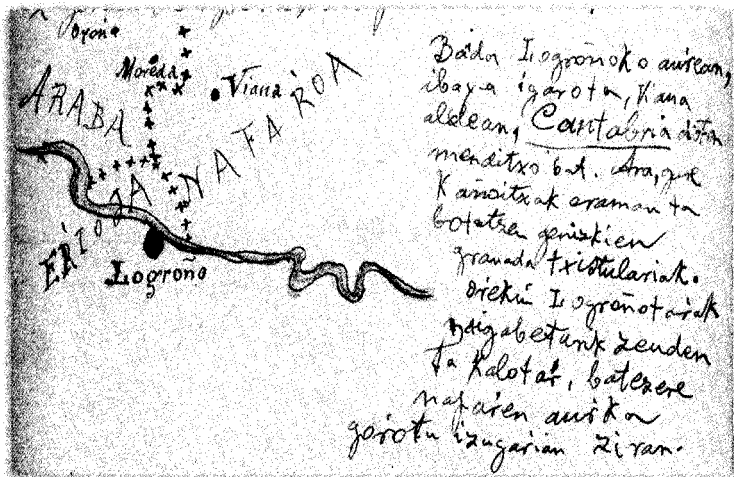 Oyon
Moreda
Viana
ARABA
NAFAROA
ERIOJA
Logroño
Bada Logroñoko aurean,
ibaya igarota, Viana
aldean, Cantabria
menditxo bat. Ara, gure
Kañoitxak eraman ta
botatzen genizkien
granada txistulariak.
Orekin Logroñotarak
naigabeturik zeuden
ta Kalotar, batezere
nafaren aurka
gorotu izugarian ziran.